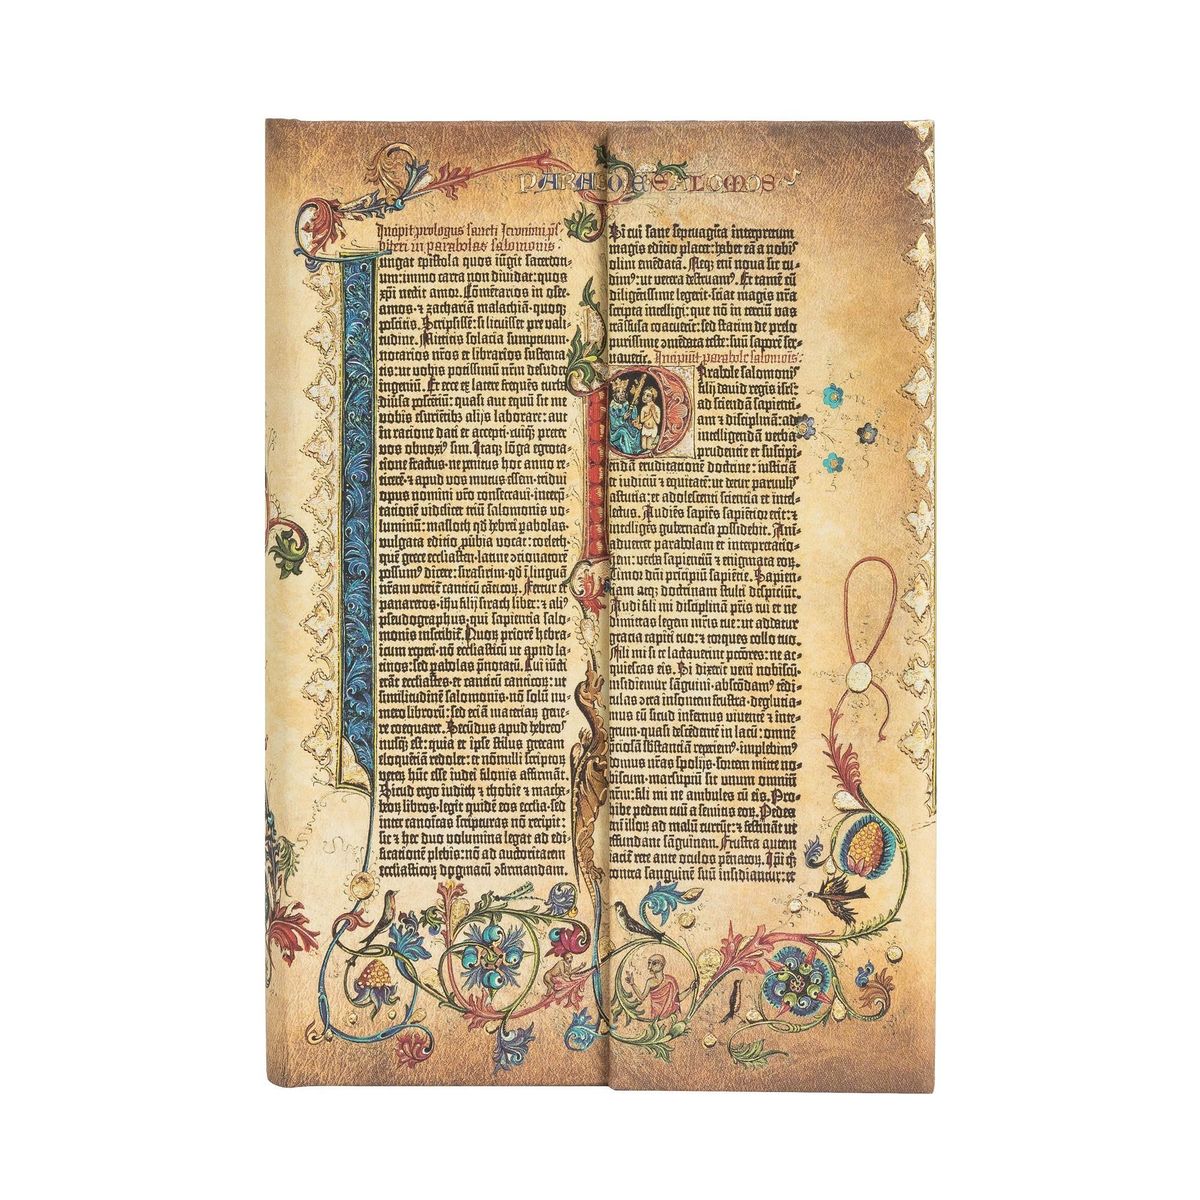 PARABOLE SALOMOIS
Incipit prologus sancti Ieronimi p̄s-
biteri in parabolas salomonis
Iungat epistola quos iūgit sacerdoti-
um: immo carta non dividat: quos
xp̄i nectit amor. Cōmētarios in osee.
amos. ⁊ zachariam malachiam quoqꝫ
poscitis. Scripsissē: si licuisset pre vali-
tudine. Mittitis solacia sumptuum.
notarios nr̄os et librarios sustenta-
tis: ut vobis potissimū nr̄m desudet
ingeniū. Et ecce ex latere frequēs turba
diūsa poscētiū: quasi aut equū sit me
vobis esurietibꝫ alijs laborare: aut
in ratione dati et accepti. cuiqꝫ preter
vos obnoxiꝰ sim. Itaqꝫ lōga egrota-
tione fractus. ne penitus hoc anno re-
ticerē. ⁊ apud vos mutus essem. tridui
opus nomini vr̄o consecraui. interp-
tationē videlicet triū salomonis vo-
luminū: masloth qd̄ hebrei pabolas.
vulgata editio p̄ubia vocat: coeleth.
quē grece ecclīasten. latine ɔcionatorē
possumꝰ dicere: sirasirim. qd̄ ī linguā
nr̄am vertit̄ canticū canticoꝝ. Fertur et
panaretos. ihu filij sirach liber: ⁊ aliꝰ
pseudographus. qui sapientia salo-
monis inscribit̄. Quoꝝ priorē hebra-
icum reperi. nō ecclesiasticū ut apud la-
tinos: sed pabolas p̄notatū. Cui iūcti
erāt ecclesiastes. et canticū canticoꝝ: ut
similitudinē salomonis. nō solū nu-
mero librorū: sed eciā materiaꝝ gene-
re coequaret. Secūdus apud hebreos
nusqꝫ est: quia et ipse stilus grecam
eloquētiā redolet: et nōnulli scriptoꝝ
veteꝝ hūc esse iudei filonis affirmāt.
Sicud ergo iudith ⁊ thobie ⁊ macha-
beoꝝ libros. legit quidē eos ecclīa. sed
inter canoicas scripturas nō recipit:
sic ⁊ hec duo volumina legat ad edi-
ficationē plebis: nō ad auctoritatem
ecclesiasticoꝝ dogmatū ɔfirmandam.
Si cui sane septuagīta interpretum
magis editio placet: habet eā a nobis
olim emēdatā. Neqꝫ eni nova sic cu-
dimꝰ: ut vetera destruamꝰ. Et tamē cū
diligētissime legerit. sciat magis nr̄a
scripta intelligi: que nō in terciū vas
trāsfusa coacuerīt: sed statim de prelo
purissime ɔmēdata teste: suū saporē ser-
vaverīt. Incipiūt parabole salomonis:
Parabole salomonis
filij david regis isrl̄:
ad sciendā sapienti-
am ⁊ disciplinā: ad
intelligendā verba
prudentie et suscipi-
endā eruditationē doctrine: iusticiā
et iudiciū ⁊ equitatē: ut detur parvulis
astutia: et adolescenti scientia et intel-
lectus. Audiēs sapiēs sapiētior erit: ⁊
intelligēs gubernacl̄a possidebit. Ani-
advertet parabolam et interpretatio-
nem: verba sapientiū ⁊ enigmata eoꝝ.
Timor dn̄i principiū sapiētie. Sapien-
tiam atqꝫ doctrinam stulti despiciūt.
Audi fili mi disciplinā pr̄is tui et ne
dimittas legem mr̄is tue: ut addatur
gracia capiti tuo: ⁊ torques collo tuo.
Fili mi si te lactaverint pctōres: ne ac-
quiescas eis. Si dixerit veni nobiscū.
insidiemur sāguini. abscōdamꝰ tēdi-
culas ɔtra insontem frustra. deglutia-
mus eū sicud infernus viventē ⁊ inte-
grum. quasi descēdentē in lacū: omnē
p̄ciosā sb̄stanciā reperiemꝰ. implebimꝰ
domus nr̄as spolijs. sortem mitte no-
biscum. marsupiū sit unum omniū
nr̄m: fili mi ne ambules cū eis. Pro-
hibe pedem tuū a semitis eoꝝ. Pedes
eni illoꝝ ad malū currūt: ⁊ festināt ut
effundant sanguinem. Frustra autem
iacit̄ rete ante oculos pēnatoꝝ. Ipi qꝫ
contra sanguinē suū insidiantur: et